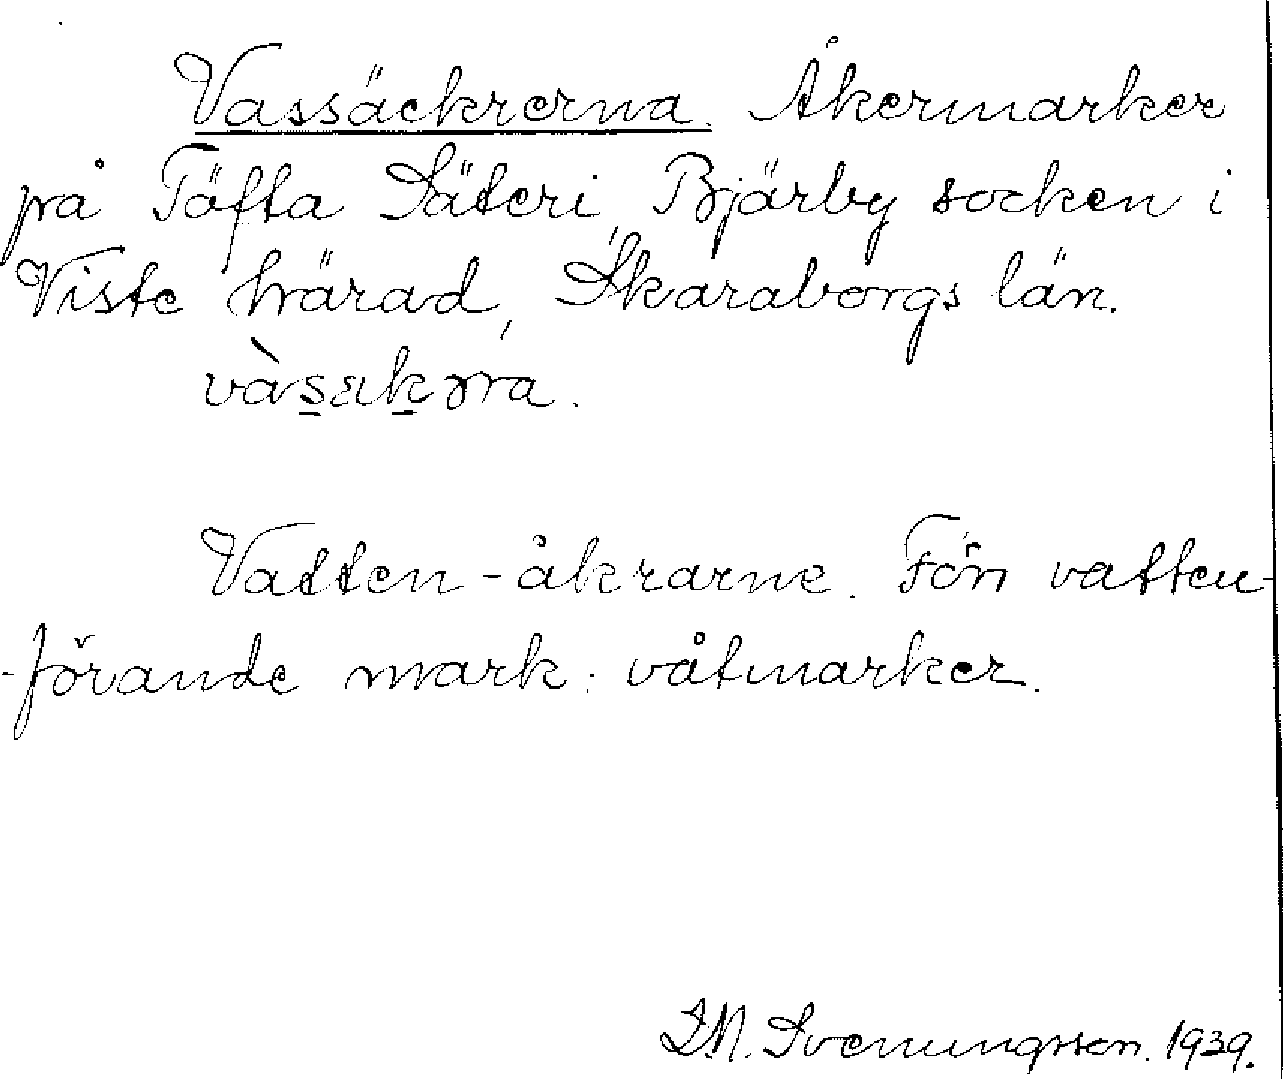 Vassäckrerna. Åkermarker
på Täfta Säteri, Bjärby socken i
Viste härad, Skaraborgs län.
vàsakɔra.
Vatten-åkrarne. Förr vatten-
-förande mark: våtmarker.
I.M. Svenungsson. 1939.